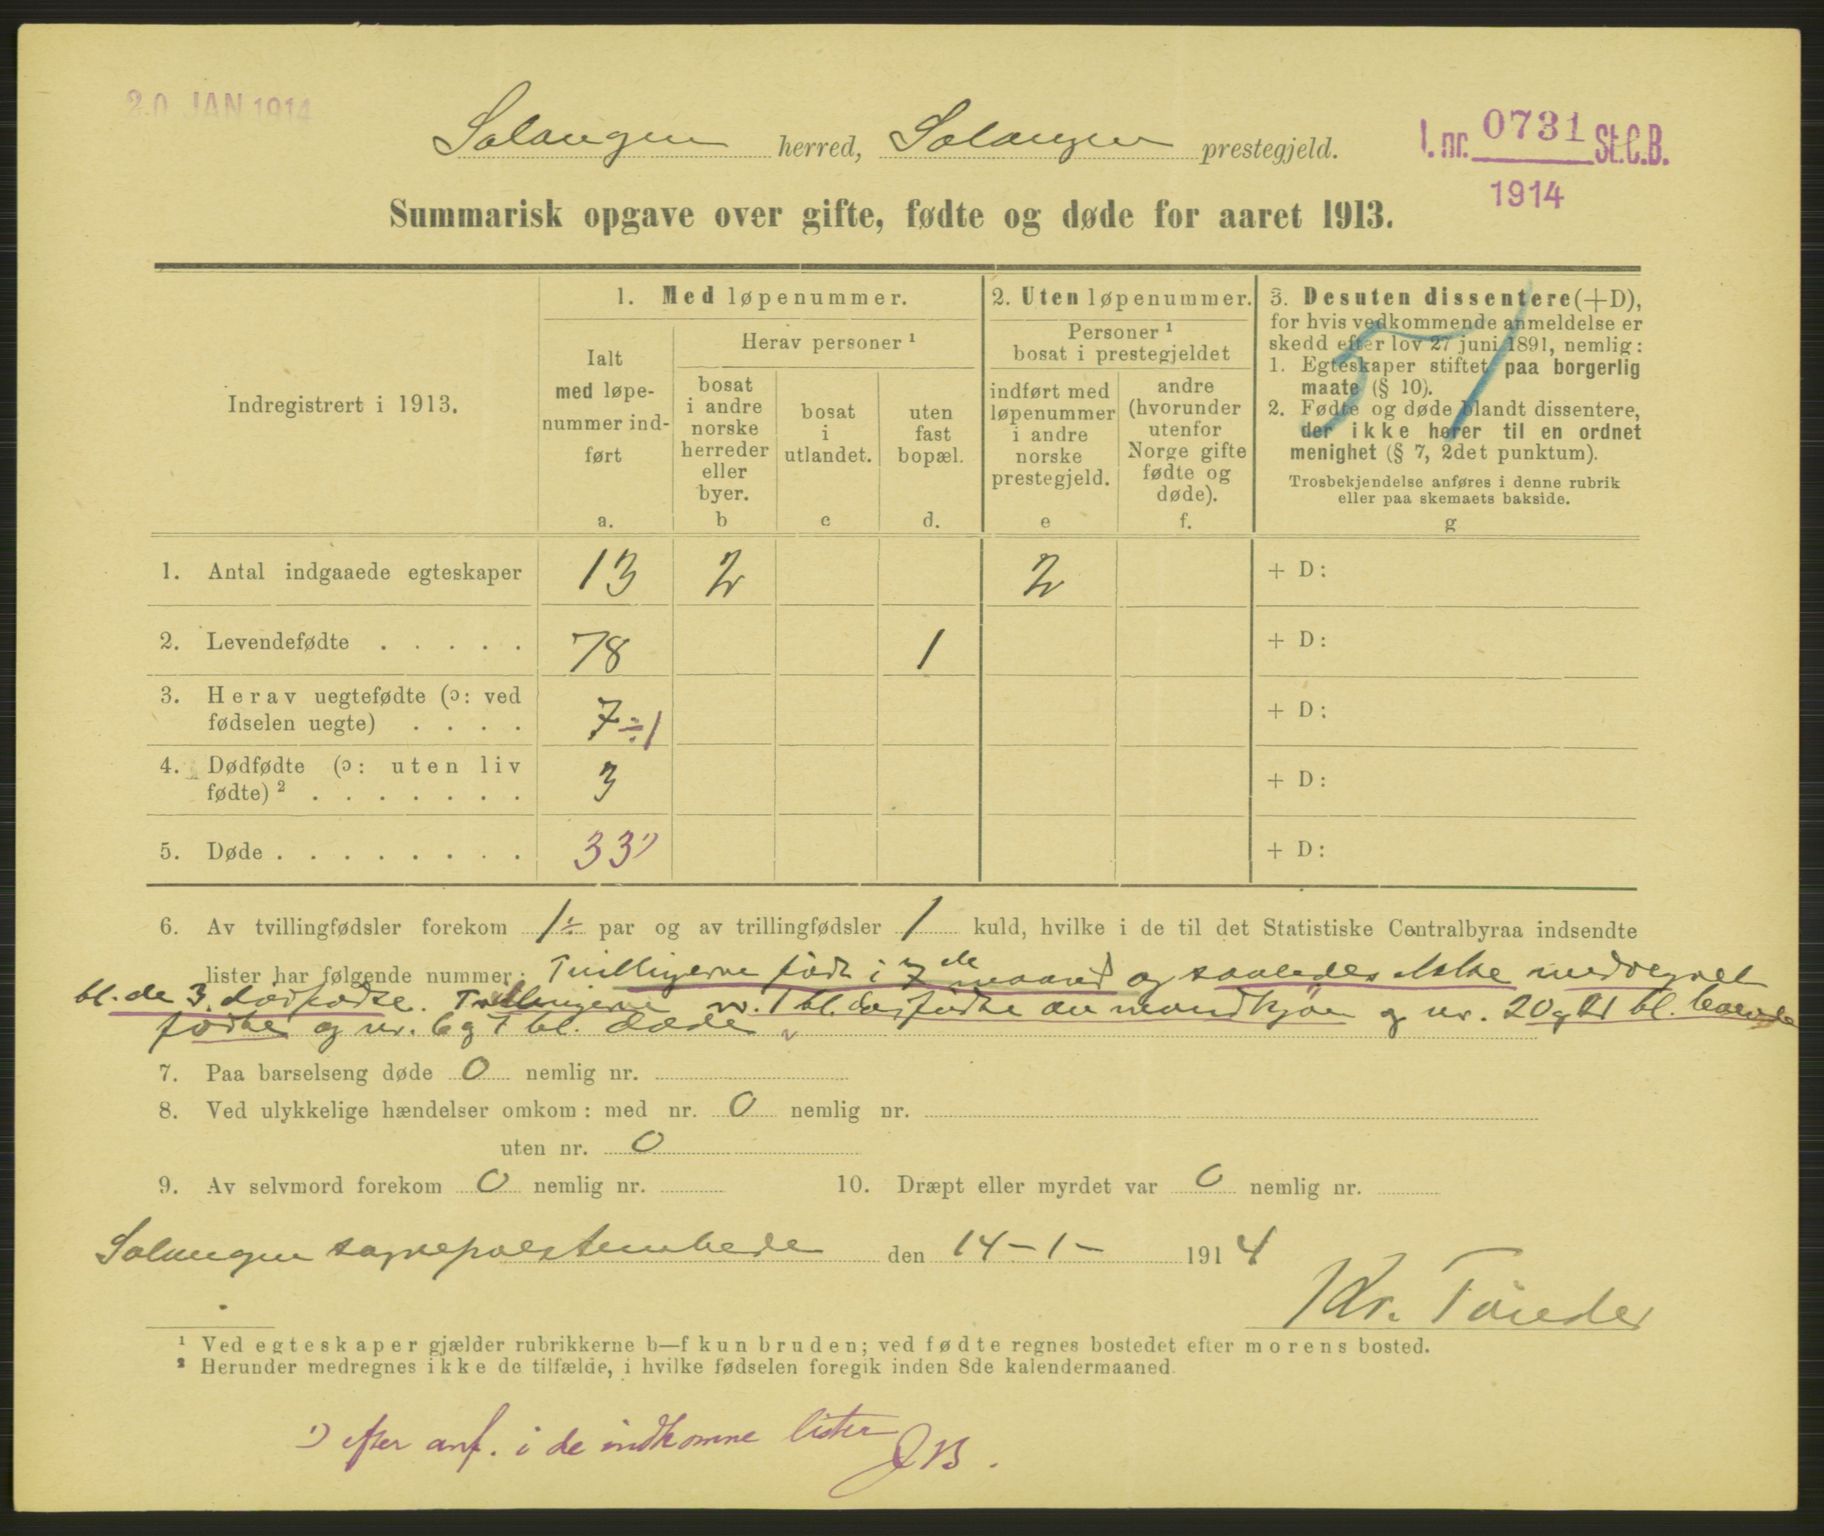 20 JAN 1914
Salangen herred, Salangen prestegjeld.
I. nr. 0731 St.C.B.
1914
Summarisk opgave over gifte, fødte og døde for aaret 1913.
Indregistrert i 1913.
1. Med løpenummer.
Ialt
med løpe-
nummer ind-
ført
a.
Herav personer ¹
bosat
i andre
norske
herreder
eller
byer.
b
bosat
i
utlandet.
c
uten
fast
bopæl.
d.
2. Uten løpenummer.
Personer ¹
bosat i prestegjeldet
indført med
løpenummer
i andre
norske
prestegjeld.
e
andre
(hvorunder
utenfor
Norge gifte
fødte og
døde).
f.
3. Desuten dissentere (+D),
for hvis vedkommende anmeldelse er
skedd efter lov 27 juni 1891, nemlig:
1. Egteskaper stiftet paa borgerlig
maate (§ 10).
2. Fødte og døde blandt dissentere,
der ikke hører til en ordnet
menighet (§ 7, 2det punktum).
Trosbekjendelse anføres i denne rubrik
eller paa skemaets bakside.
g
51
1. Antal indgaaede egteskaper 13 2 2 + D:
2. Levendefødte . . . . . 78 1 + D:
3. Herav uegtefødte (ɔ: ved
fødselen uegte) . . . . 7 ÷1 + D:
4. Dødfødte (ɔ: uten liv
fødte) ² . . . . . . . 3 + D:
5. Døde . . . . . . . . 33 ¹) + D:
6. Av tvillingfødsler forekom 1 ÷ par og av trillingfødsler 1 kuld, hvilke i de til det Statistiske Centralbyraa indsendte
lister har følgende nummer: Tvillingerne født i 7de maaned og saaledes ikke medregnet
bl. de 3 dødfødte. Trillingerne nr. 1 bl. dødfødte av mandkjøn og nr. 20 og 21 bl. levende
fødte og nr. 6 og 7 bl. døde
7. Paa barselseng døde 0 nemlig nr.
8. Ved ulykkelige hændelser omkom: med nr. 0 nemlig nr.
uten nr. 0
9. Av selvmord forekom 0 nemlig nr.
10. Dræpt eller myrdet var 0 nemlig nr.
Salangen sogneprestembede den 14-1- 1914
Kr. Tønder
¹ Ved egteskaper gjælder rubrikkerne b—f kun bruden; ved fødte regnes bostedet efter morens bosted.
² Herunder medregnes ikke de tilfælde, i hvilke fødselen foregik inden 8de kalendermaaned.
¹) efter anf. i de indkomne lister
JB.